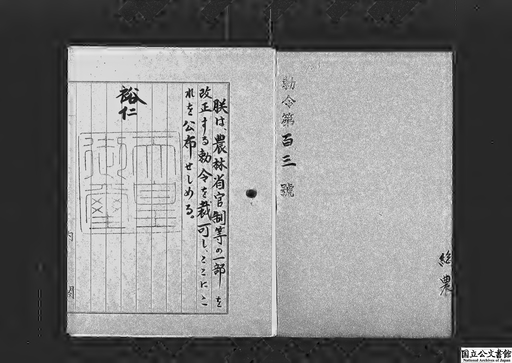 勅令第百三號
総農
朕は、農林省官制等の一部を
改正する勅令を裁可し、ここにこ
れを公布せしめる。
裕仁
天皇御璽
内閣
国立公文書館
National Archives of Japan